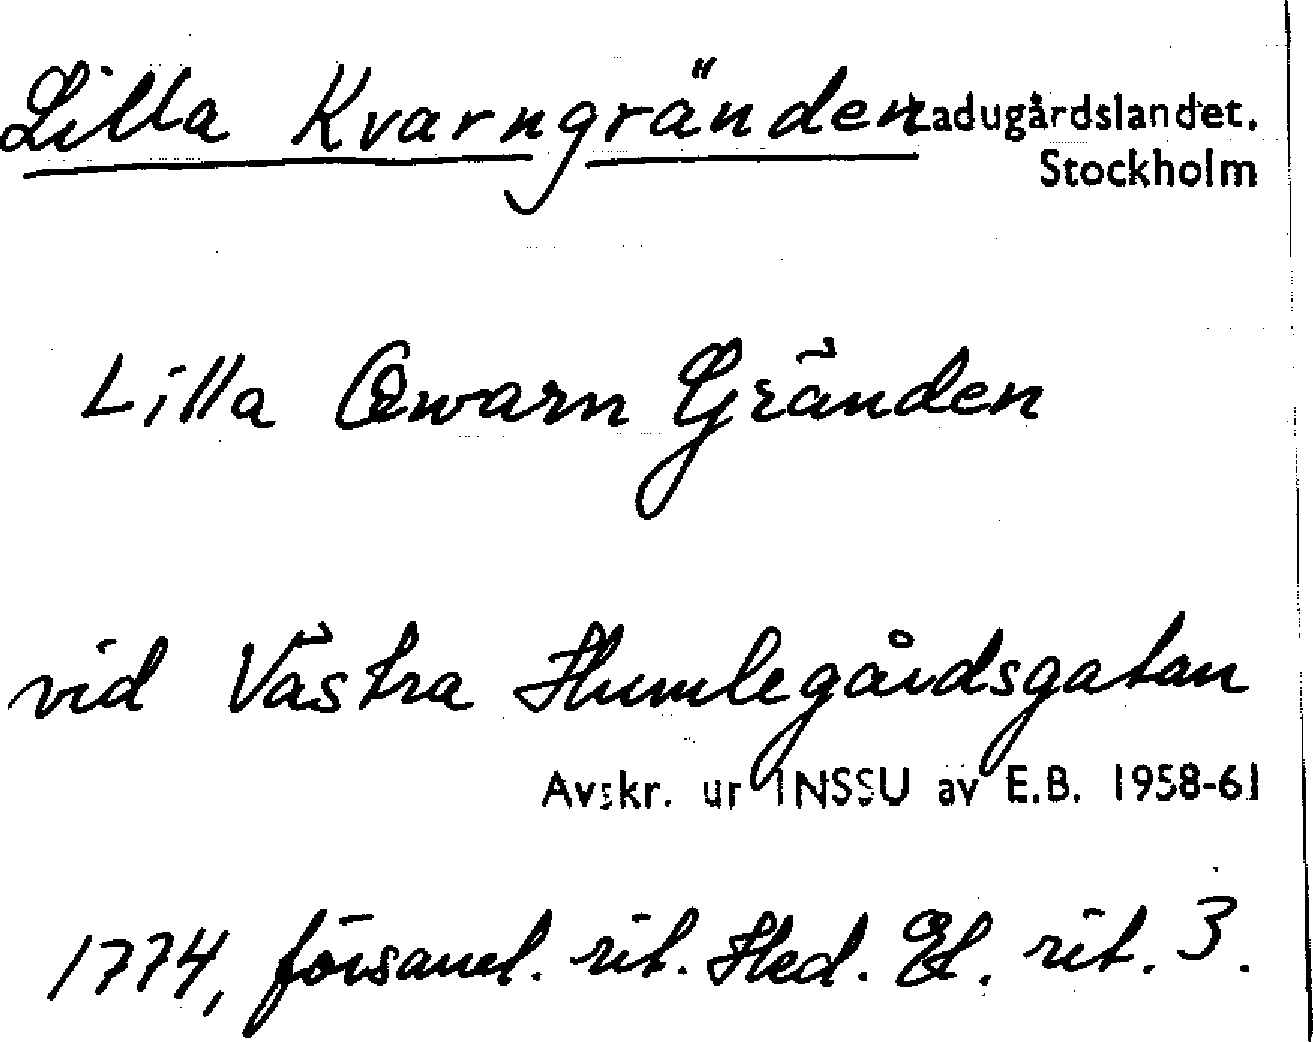 Lilla Kvarngränden Ladugårdslandet.
Stockholm
Lilla Qwarn Gränden
vid Västra Humlegårdsgatan
Avskr. ur INSSU av E.B. 1958-61
1774, församl. rit. Hed. El. rit. 3.